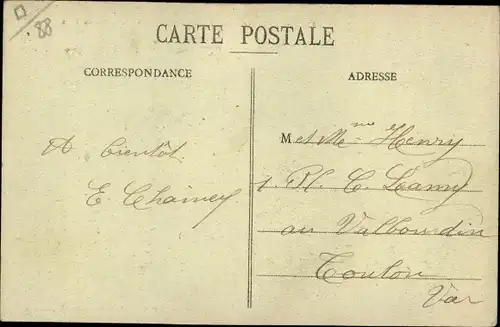 88
CARTE POSTALE
CORRESPONDANCE
ADRESSE
A bientôt
E Chainey
M et Mme Henry
1. Pl. C. Lamy
au Valbourdin
Toulon
Var